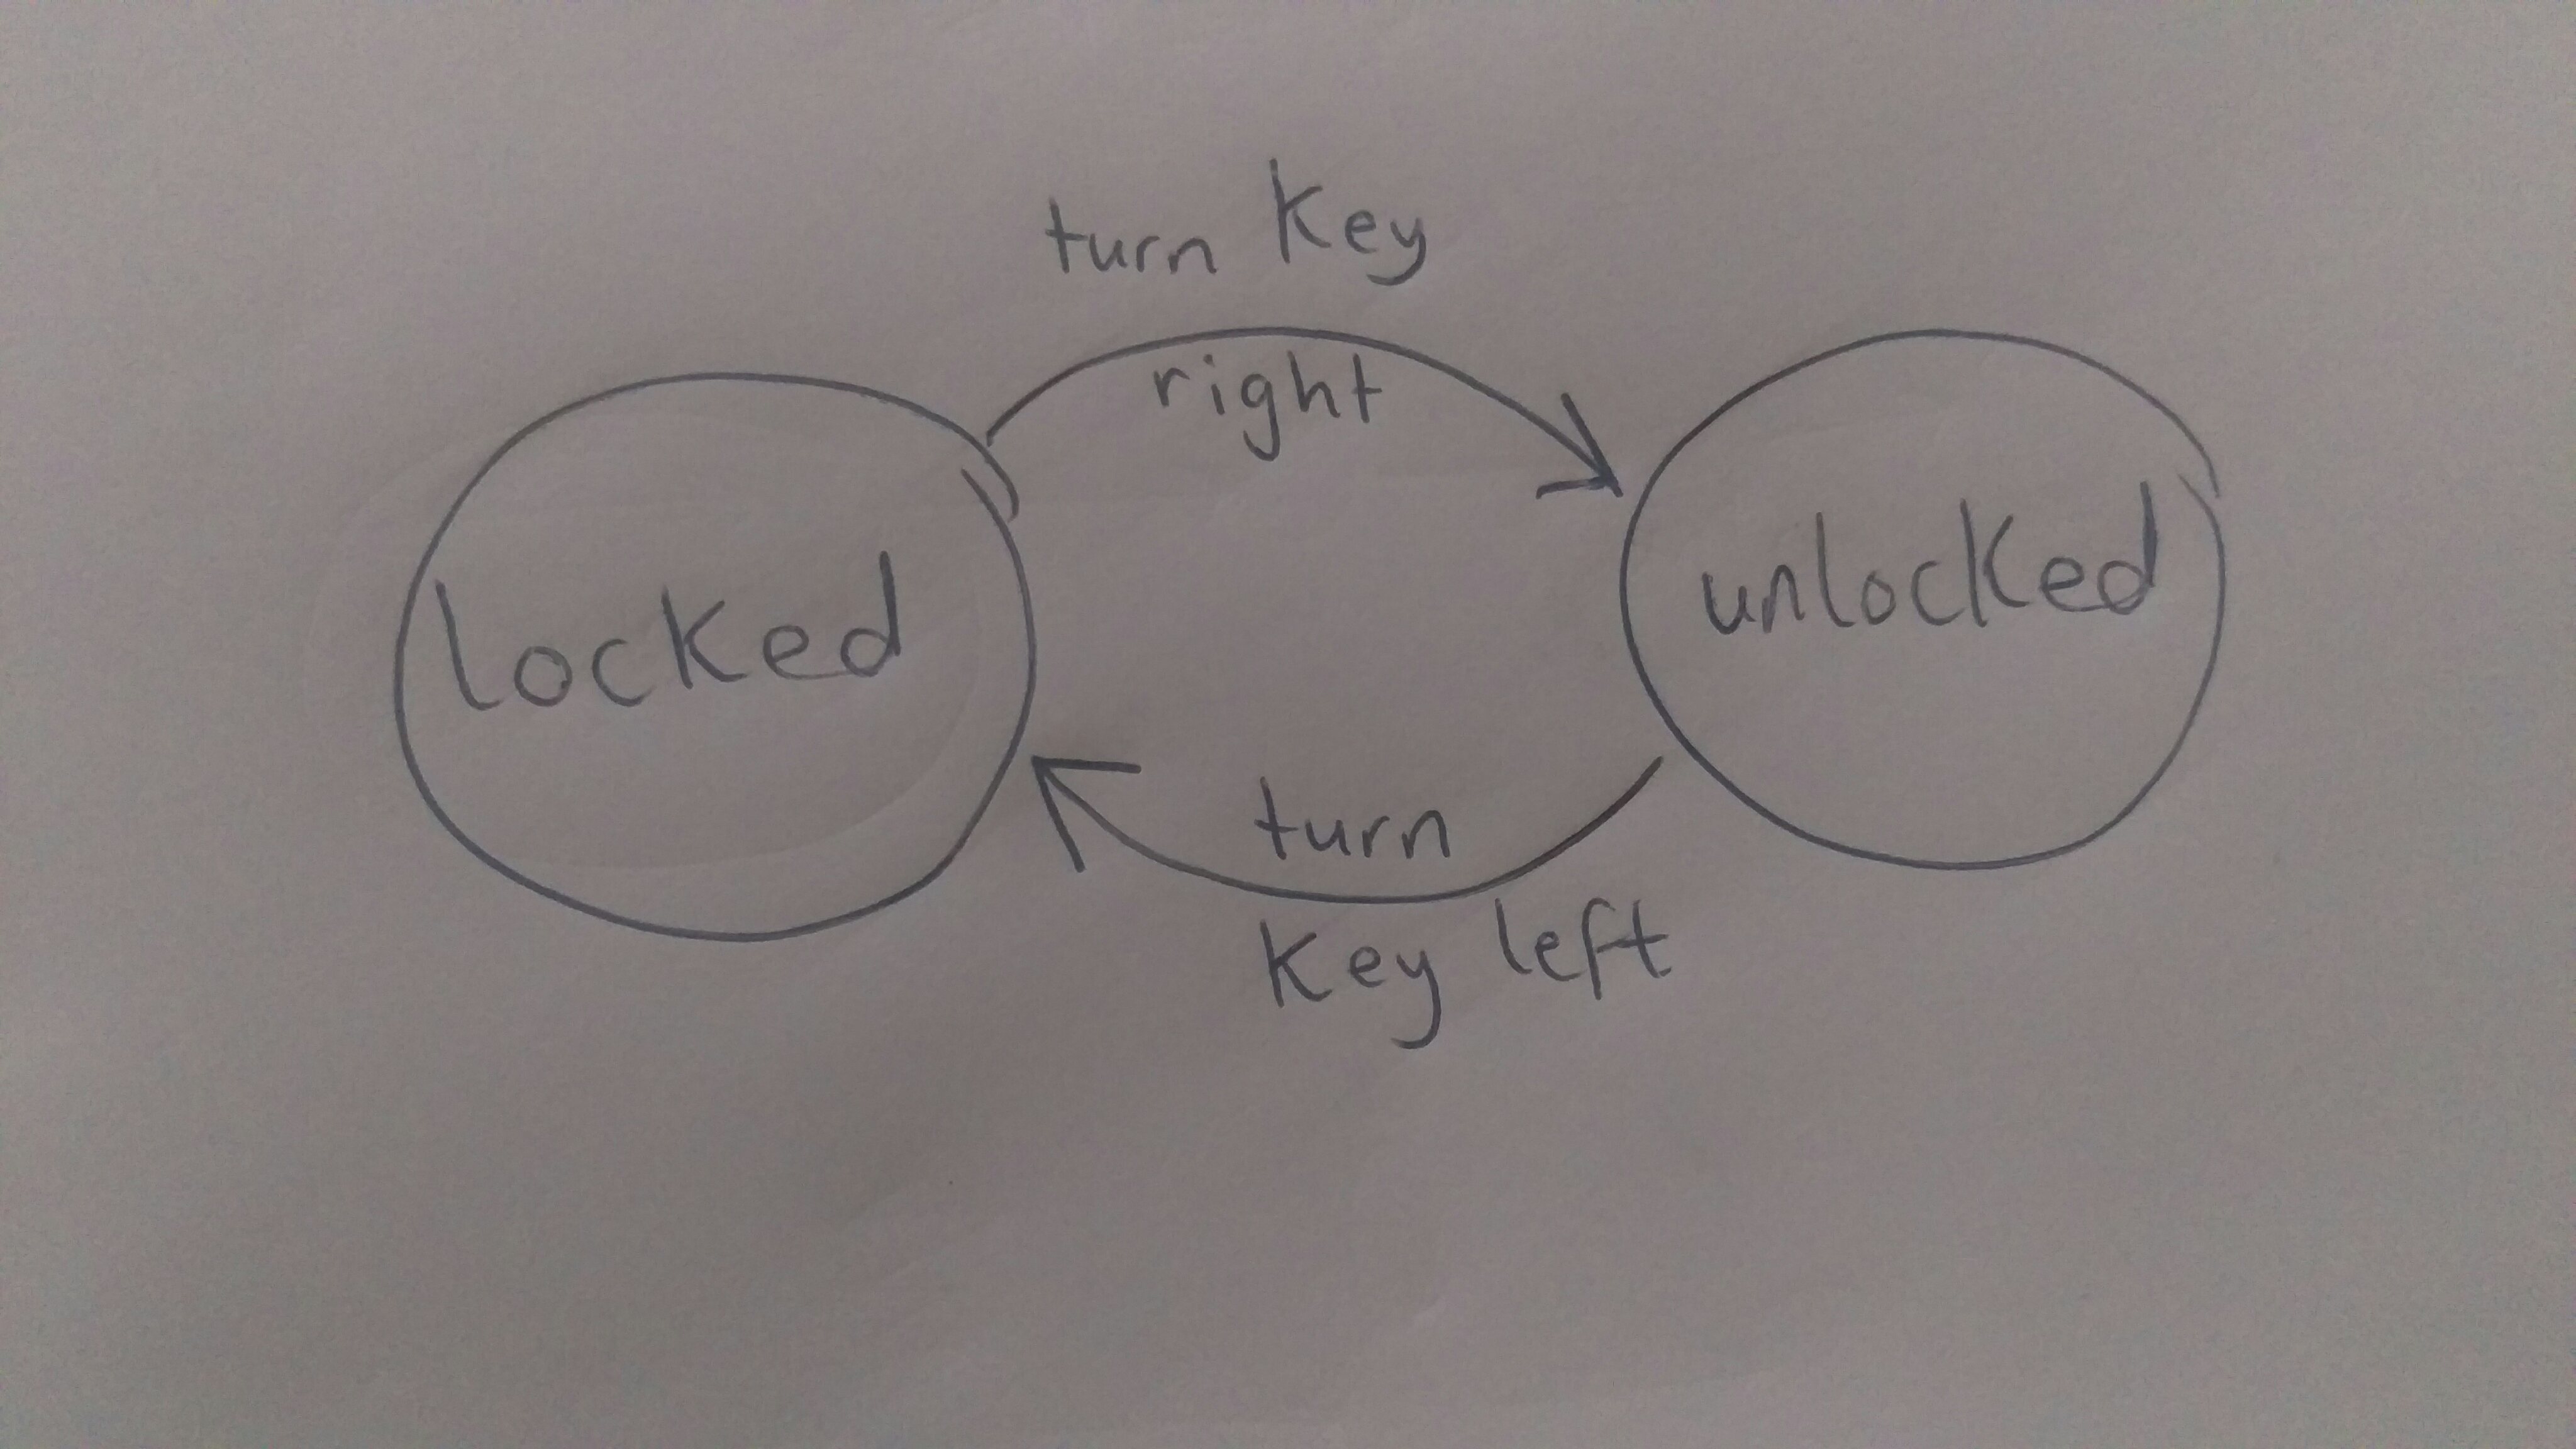 turn key
right
locked
unlocked
turn
key left